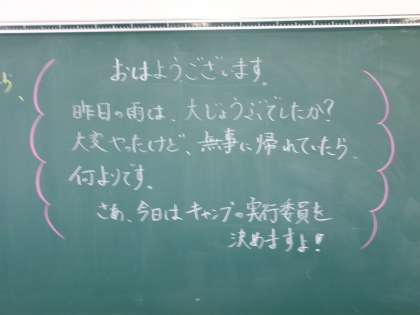 おはようございます。
昨日の雨は、大じょうぶでしたか?
大変やったけど、無事に帰れていたら、
何よりです。
さあ、今日はキャンプの実行委員を
決めますよ!